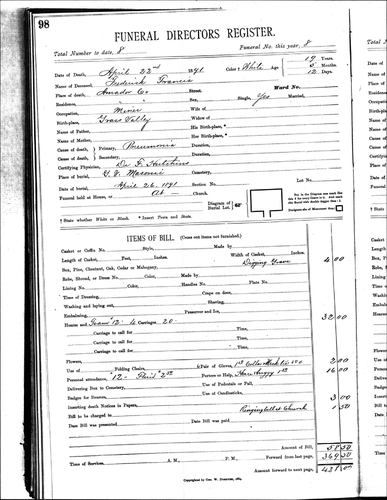 98
FUNERAL DIRECTORS REGISTER.
Total Number to date, 8 Funeral No. this year, 8
Date of Death, April 22nd 1891 Color † White Age 19 Years. 5 Months. 12 Days.
Name of Deceased, Frederick Francis
Place of death, Amador Co Street. Ward No.
Residence, " " Sex, Single, Yes Married,
Occupation, Miner Wife of
Birth-place, Grass Valley Widow of
Name of Father, His Birth-place, *
Name of Mother, Her Birth-place, *
Cause of death, Primary, Pneumonia Duration,
Cause of death, Secondary, Duration,
Certifying Physician, Dr. F. Hutchins
Place of burial, G. V. Masonic Cemetery, Lot No.
Date of burial, April 26, 1891 Section No.
Funeral held at House, or At Church.
Diagram of Burial Lot.
† State whether White or Black. * Insert Town and State.
ITEMS OF BILL. (Cross out items not furnished.)
Casket or Coffin No. Style, Made by
Length of Casket, Feet, Inches. Width of Casket, Inches.
Box, Pine, Chestnut, Oak, Cedar or Mahogany, Digging Grave 4 00
Robe, Shroud, or Dress No. Color, Made by
Lining No. Color, Handles No. Plate No.
Time of Dressing, Cups on door,
Washing and laying out, Shaving,
Embalming, Preserving in ice,
Hearse and 12- 4 Carriages 20- 32 00
Carriage to call for Time,
Carriage to call for Time,
Carriage to call for Time,
Carriage to call for Time,
Flowers,
Use of Folding Chairs, Pair of Gloves, 2 00
Personal attendance, Porters or Help, 16 00
Delivering Box to Cemetery, Use of Pedestals or Pall,
Badges for Bearers, Use of Candlesticks,
Inserting death Notices in Papers, 3 00
Bill to be charged to Ringing Bell at Church 1 50
Date Bill was presented Date Bill was paid
Amount of Bill, 58 50
Forward from last page, 369 50
Time of Services, A. M., P. M. Amount forward to next page, 428 00